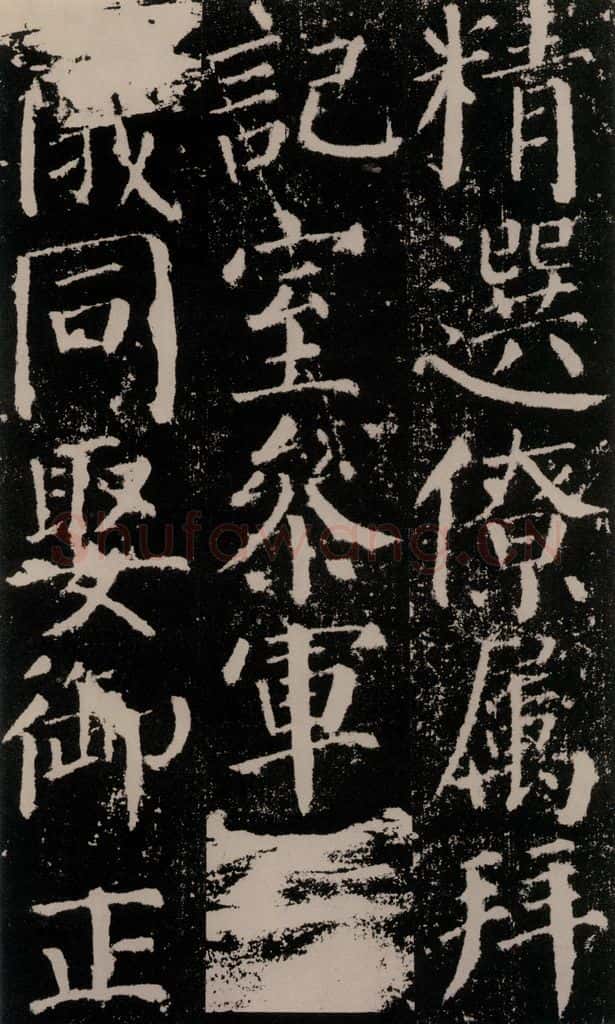 精選僚属拜
記室叅軍
儀同娶御正
Shufawang.CN